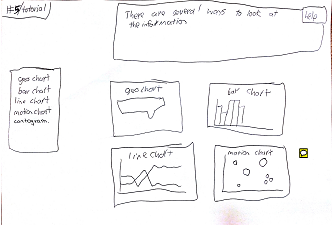 #5/tutorial
There are several ways to look at
the information
Help
geo chart
bar chart
line chart
motion chart
cartogram.
geo chart
bar chart
line chart
motion chart